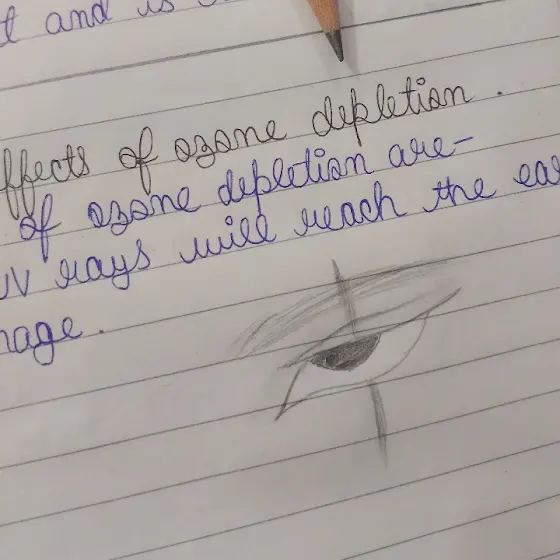 t and is
ffects of ozone depletion.
of ozone depletion are-
UV rays will reach the ear
mage.